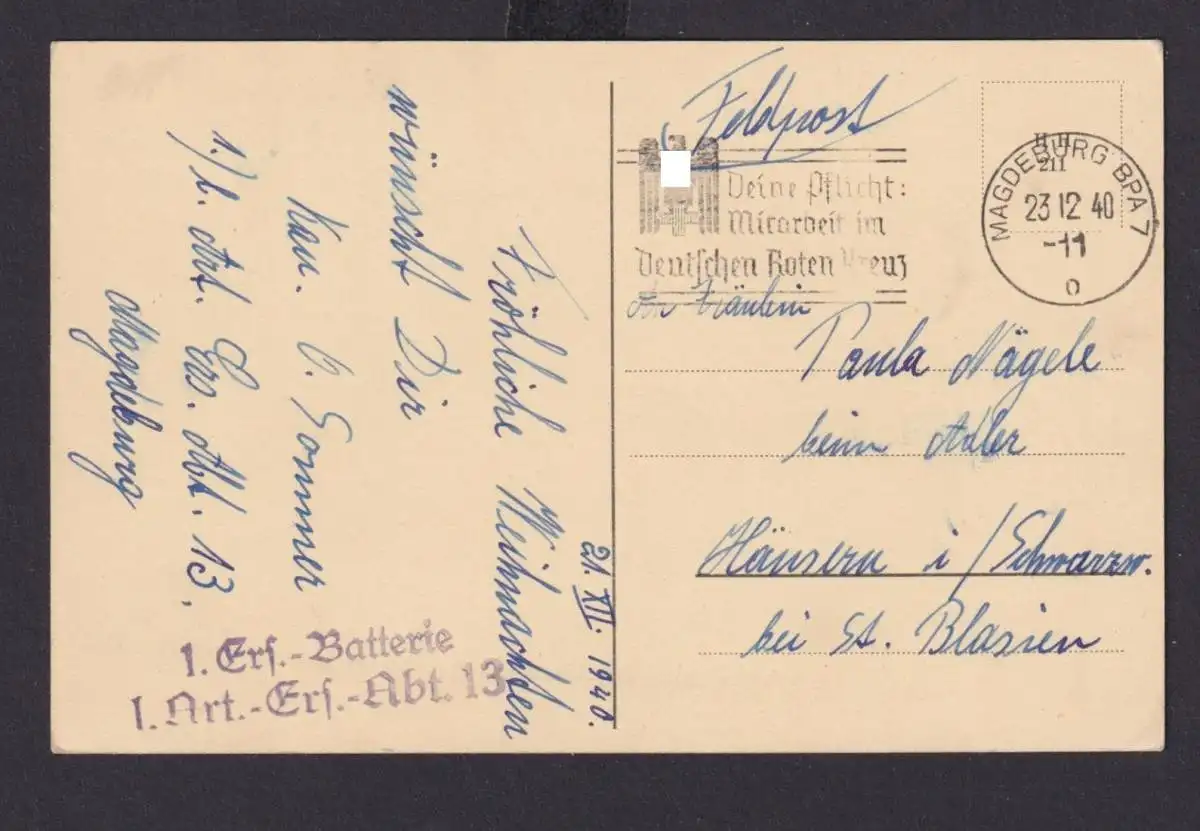 21. XII. 1940.
Fröhliche Weihnachten
wünscht Dir
Kan. O. Sommer
1.)l. Art. Ers. Abt. 13.
Magdeburg
1. Ers.-Batterie
l. Art.-Ers.-Abt. 13
Feldpost
Deine Pflicht:
Mitarbeit im
Deutschen Roten Kreuz
MAGDEBURG BPA 7
23 12 40
-11
o
211
An Fräulein
Paula Nägele
beim Adler
Häusern i/Schwarzw.
bei St. Blasien